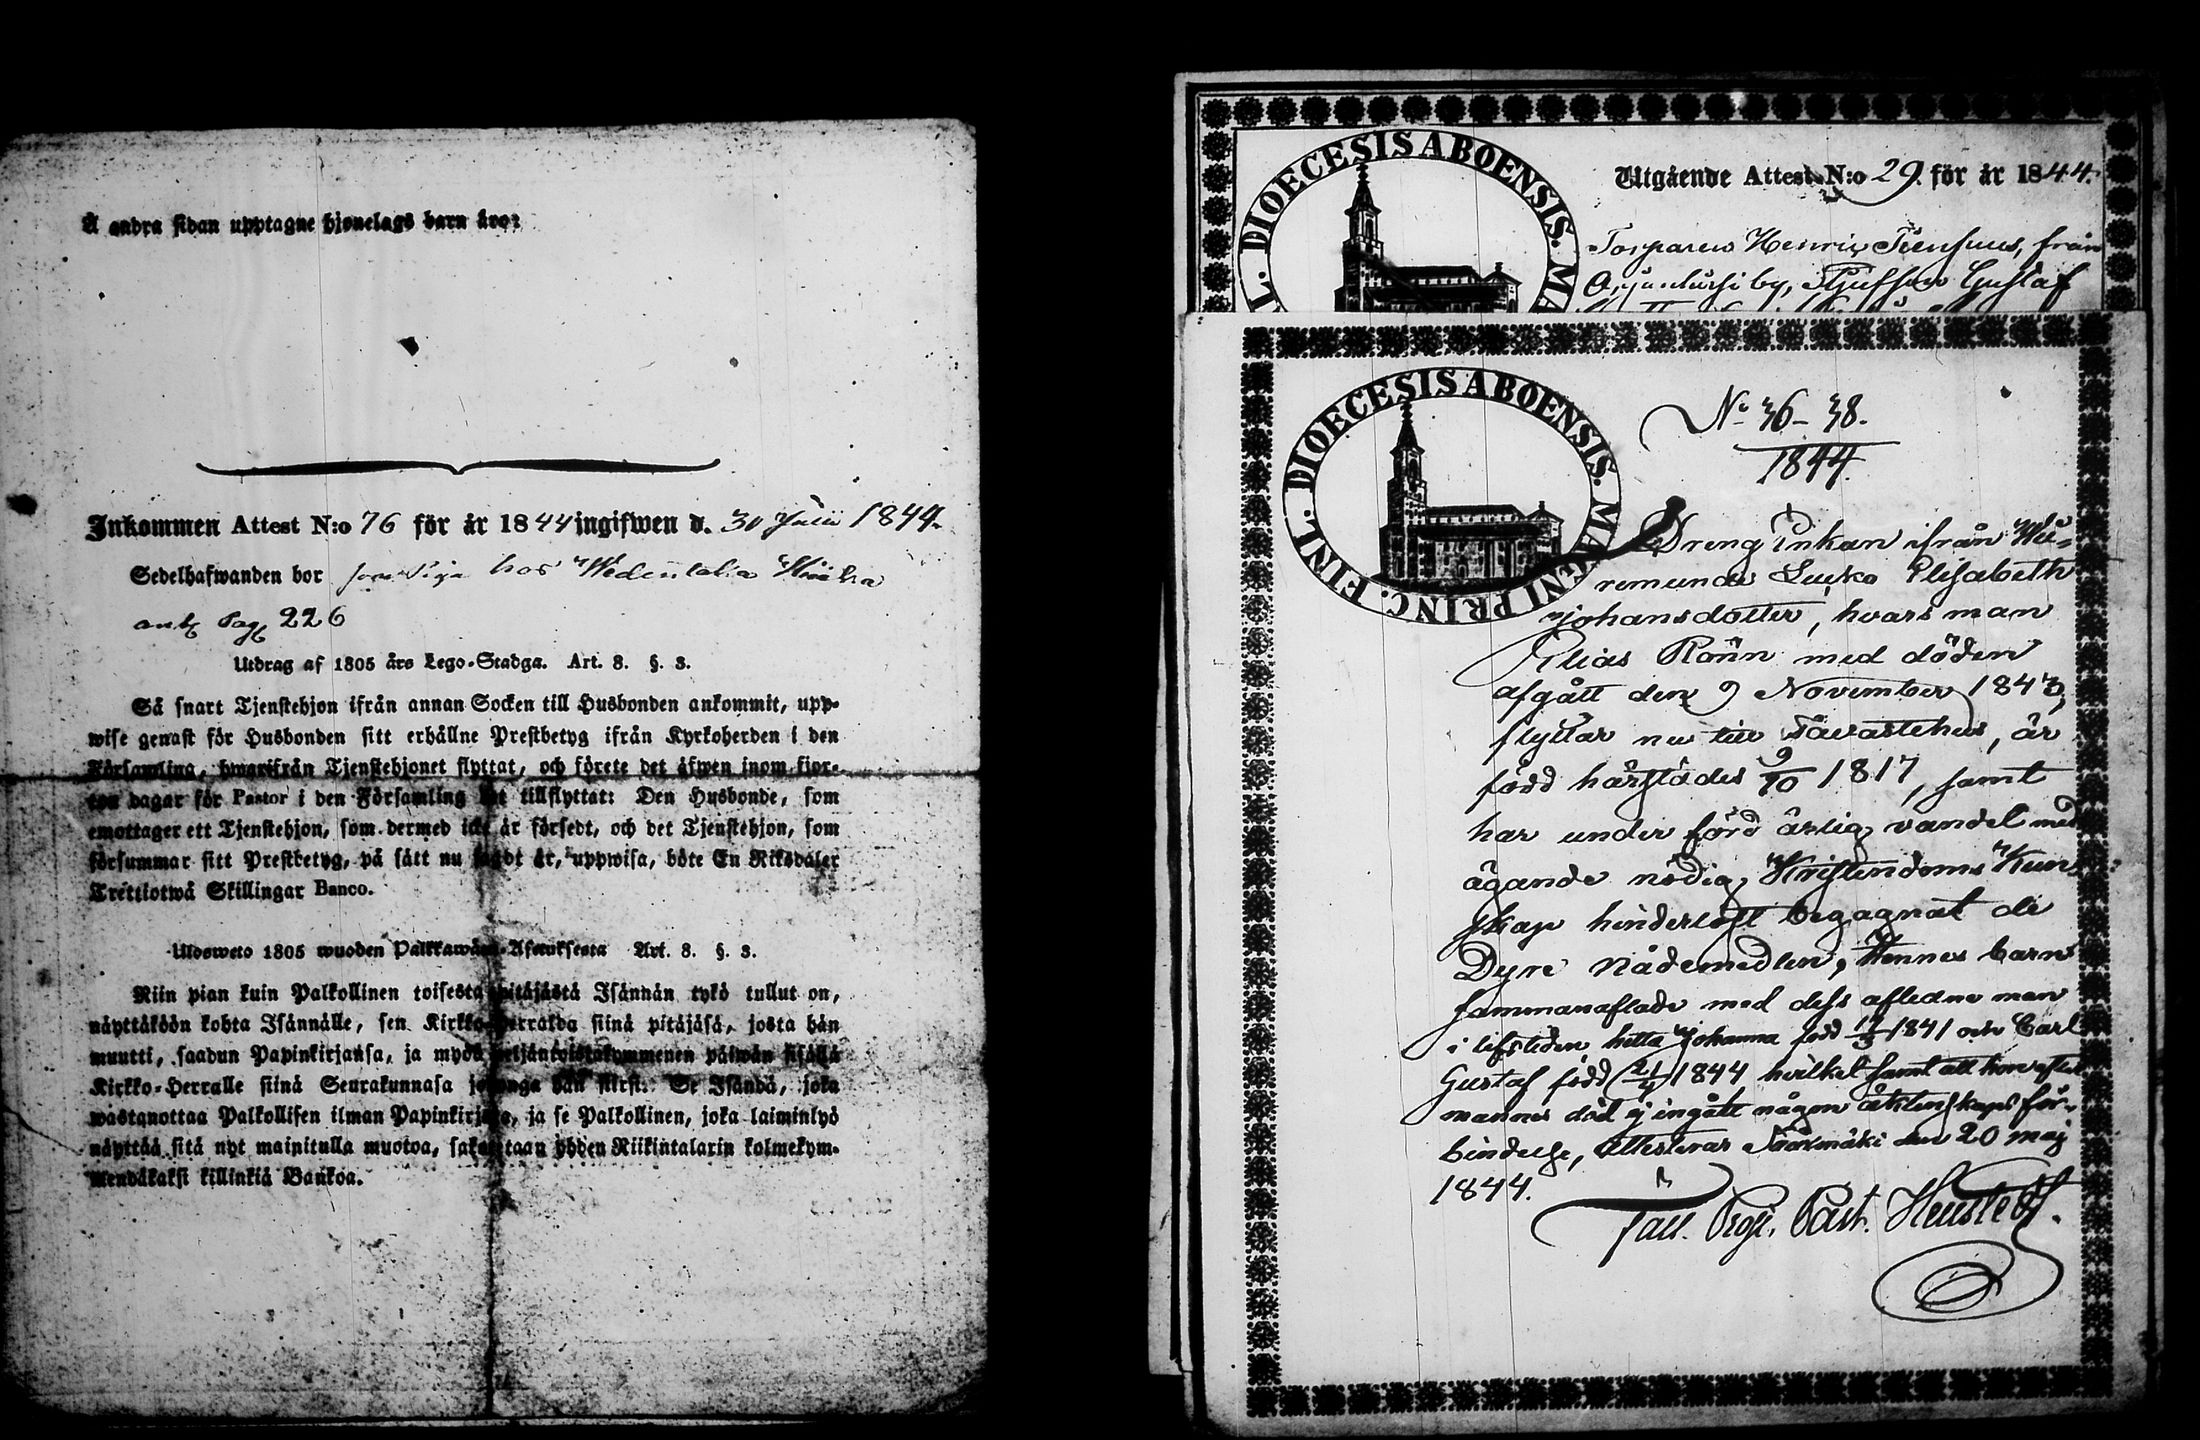 Å andra sidan upptagne hjonelags barn äro:
Inkommen Attest N:o 76 för år 1844 ingifwen d. 30 Junii 1844.
Sedelhafwanden bor hos
ant. Pag. 226
Utdrag af 1805 års Lego-Stadga. Art. 8. §. 3.
Så snart Tjenstehjon ifrån annan Socken till Husbonden ankommit, upp-
wise genast för Husbonden sitt erhållne Prestbetyg ifrån Kyrkoherden i den
Församling, hwarifrån Tjenstehjonet flyttat, och förete det äfwen inom fjor-
ton dagar för Pastor i den Församling det tillflyttat: Den Husbonde, som
emottager ett Tjenstehjon, som dermed icke är försedt, och det Tjenstehjon, som
försummar sitt Prestbetyg, på sätt nu sagdt är, uppwisa, böte En Riksdaler
Trettiotwå Skillingar Banco.
Uloswеto 1805 wuoden Palkkawäen-Asetuksesta Art. 8. §. 3.
Niin pian kuin Palkollinen toisesta pitäjästä Isännän tykö tullut on,
näyttäköön kohta Isännälle, sen Kirkko-Herralda siinä pitäjäsä, josta hän
muutti, saadun Papinkirjansa, ja myös neljäntoistakymmenen päiwän sisällä
Kirkko-Herralle siinä Seurakunnasa johonga hän siirsi: Se Isändä, joka
wastanottaa Palkollisen ilman Papinkirjata, ja se Palkollinen, joka laiminlyö
näyttää sitä nyt mainitulla muotoa, sakotetaan yhden Riikintalarin kolmekym-
mendäkaksi killinkiä Bankoa.
DIOECESIS ABOENSIS. MA
L.
Utgående Attest N:o 29. för år 1844.
Torparen Henric från
by, Gustaf
DIOECESIS ABOENSIS. MAGNI PRINC. FINL.
No 36-38.
1844.
Dreng Enkan ifrån
remunda Elisabeth
Johansdotter, hvars man
Elias Rönn med döden
afgått den 9 November 1843,
flyttar nu till Tavastehus, är
född härstädes 9/10 1817, samt
har under förd ärlig vandel med
ägande nödig Kristendoms Kun-
skap hinderlöst begagnat de
Dyre Nådemedlen, Hennes barn
sammanaflade med dess aflidne man
i lifstiden hetta Johanna född 1841 och Carl
Gustaf född 1844 hvilket samt att hon efter
mannes död ej ingått någon äktenskaps för-
bindelse, attesterar Sääxmäki den 20 maj
1844.
Past.